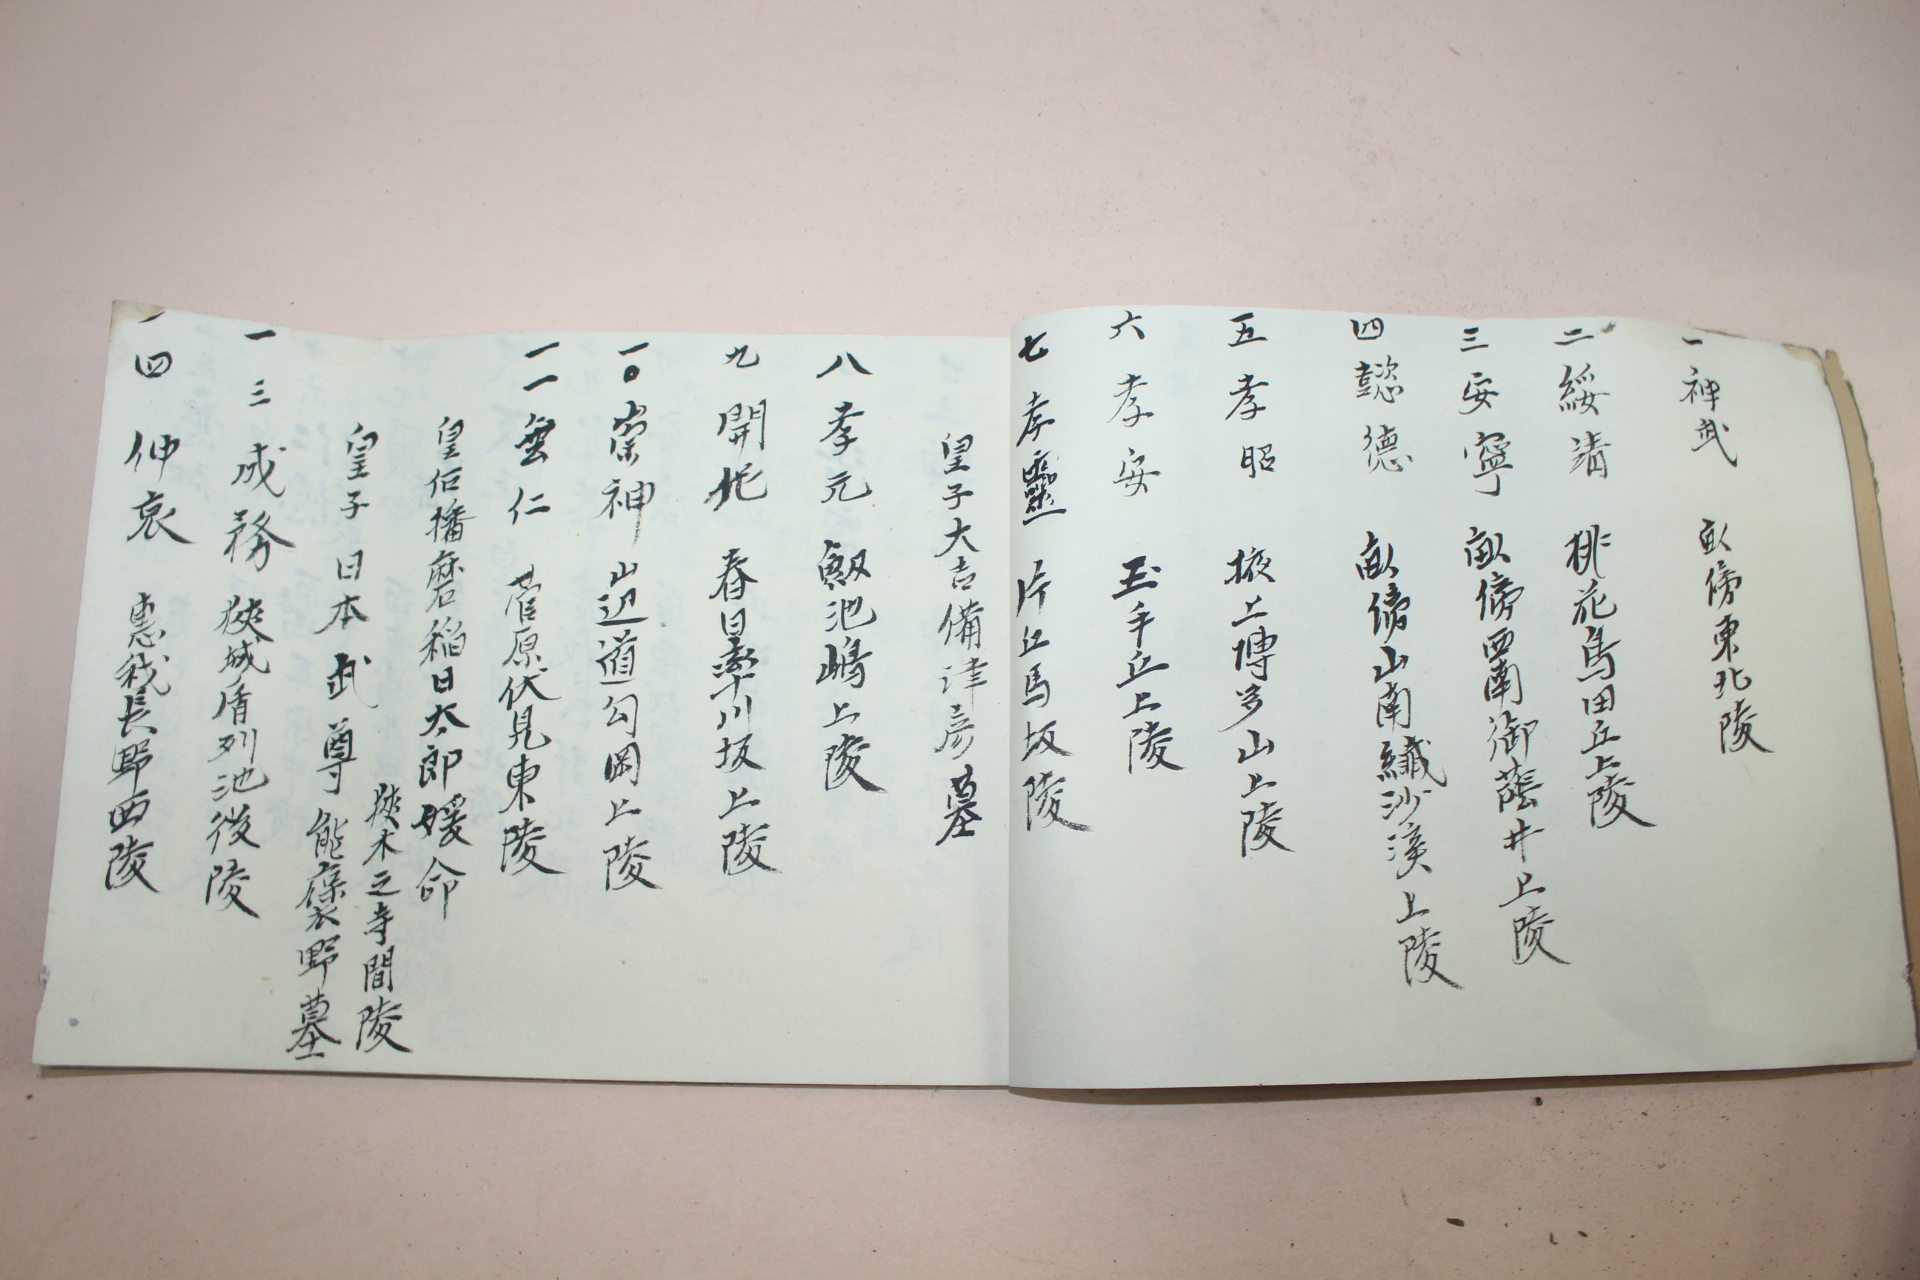 一 神武 畝傍東北陵
二 綏靖 桃花鳥田丘上陵
三 安寧 畝傍西南御蔭井上陵
四 懿德 畝傍山南纖沙溪上陵
五 孝昭 掖上博多山上陵
六 孝安 玉手丘上陵
七 孝靈 片丘馬坂陵
皇子大吉備津彦墓
八 孝元 劔池嶋上陵
九 開化 春日率川坂上陵
一〇 崇神 山辺道勾岡上陵
一一 垂仁 菅原伏見東陵
皇后播磨稲日太郎媛命
皇子 日本武尊 能褒野墓
狹木之寺間陵
一三 成務 狹城盾列池後陵
一四 仲哀 惠我長野西陵